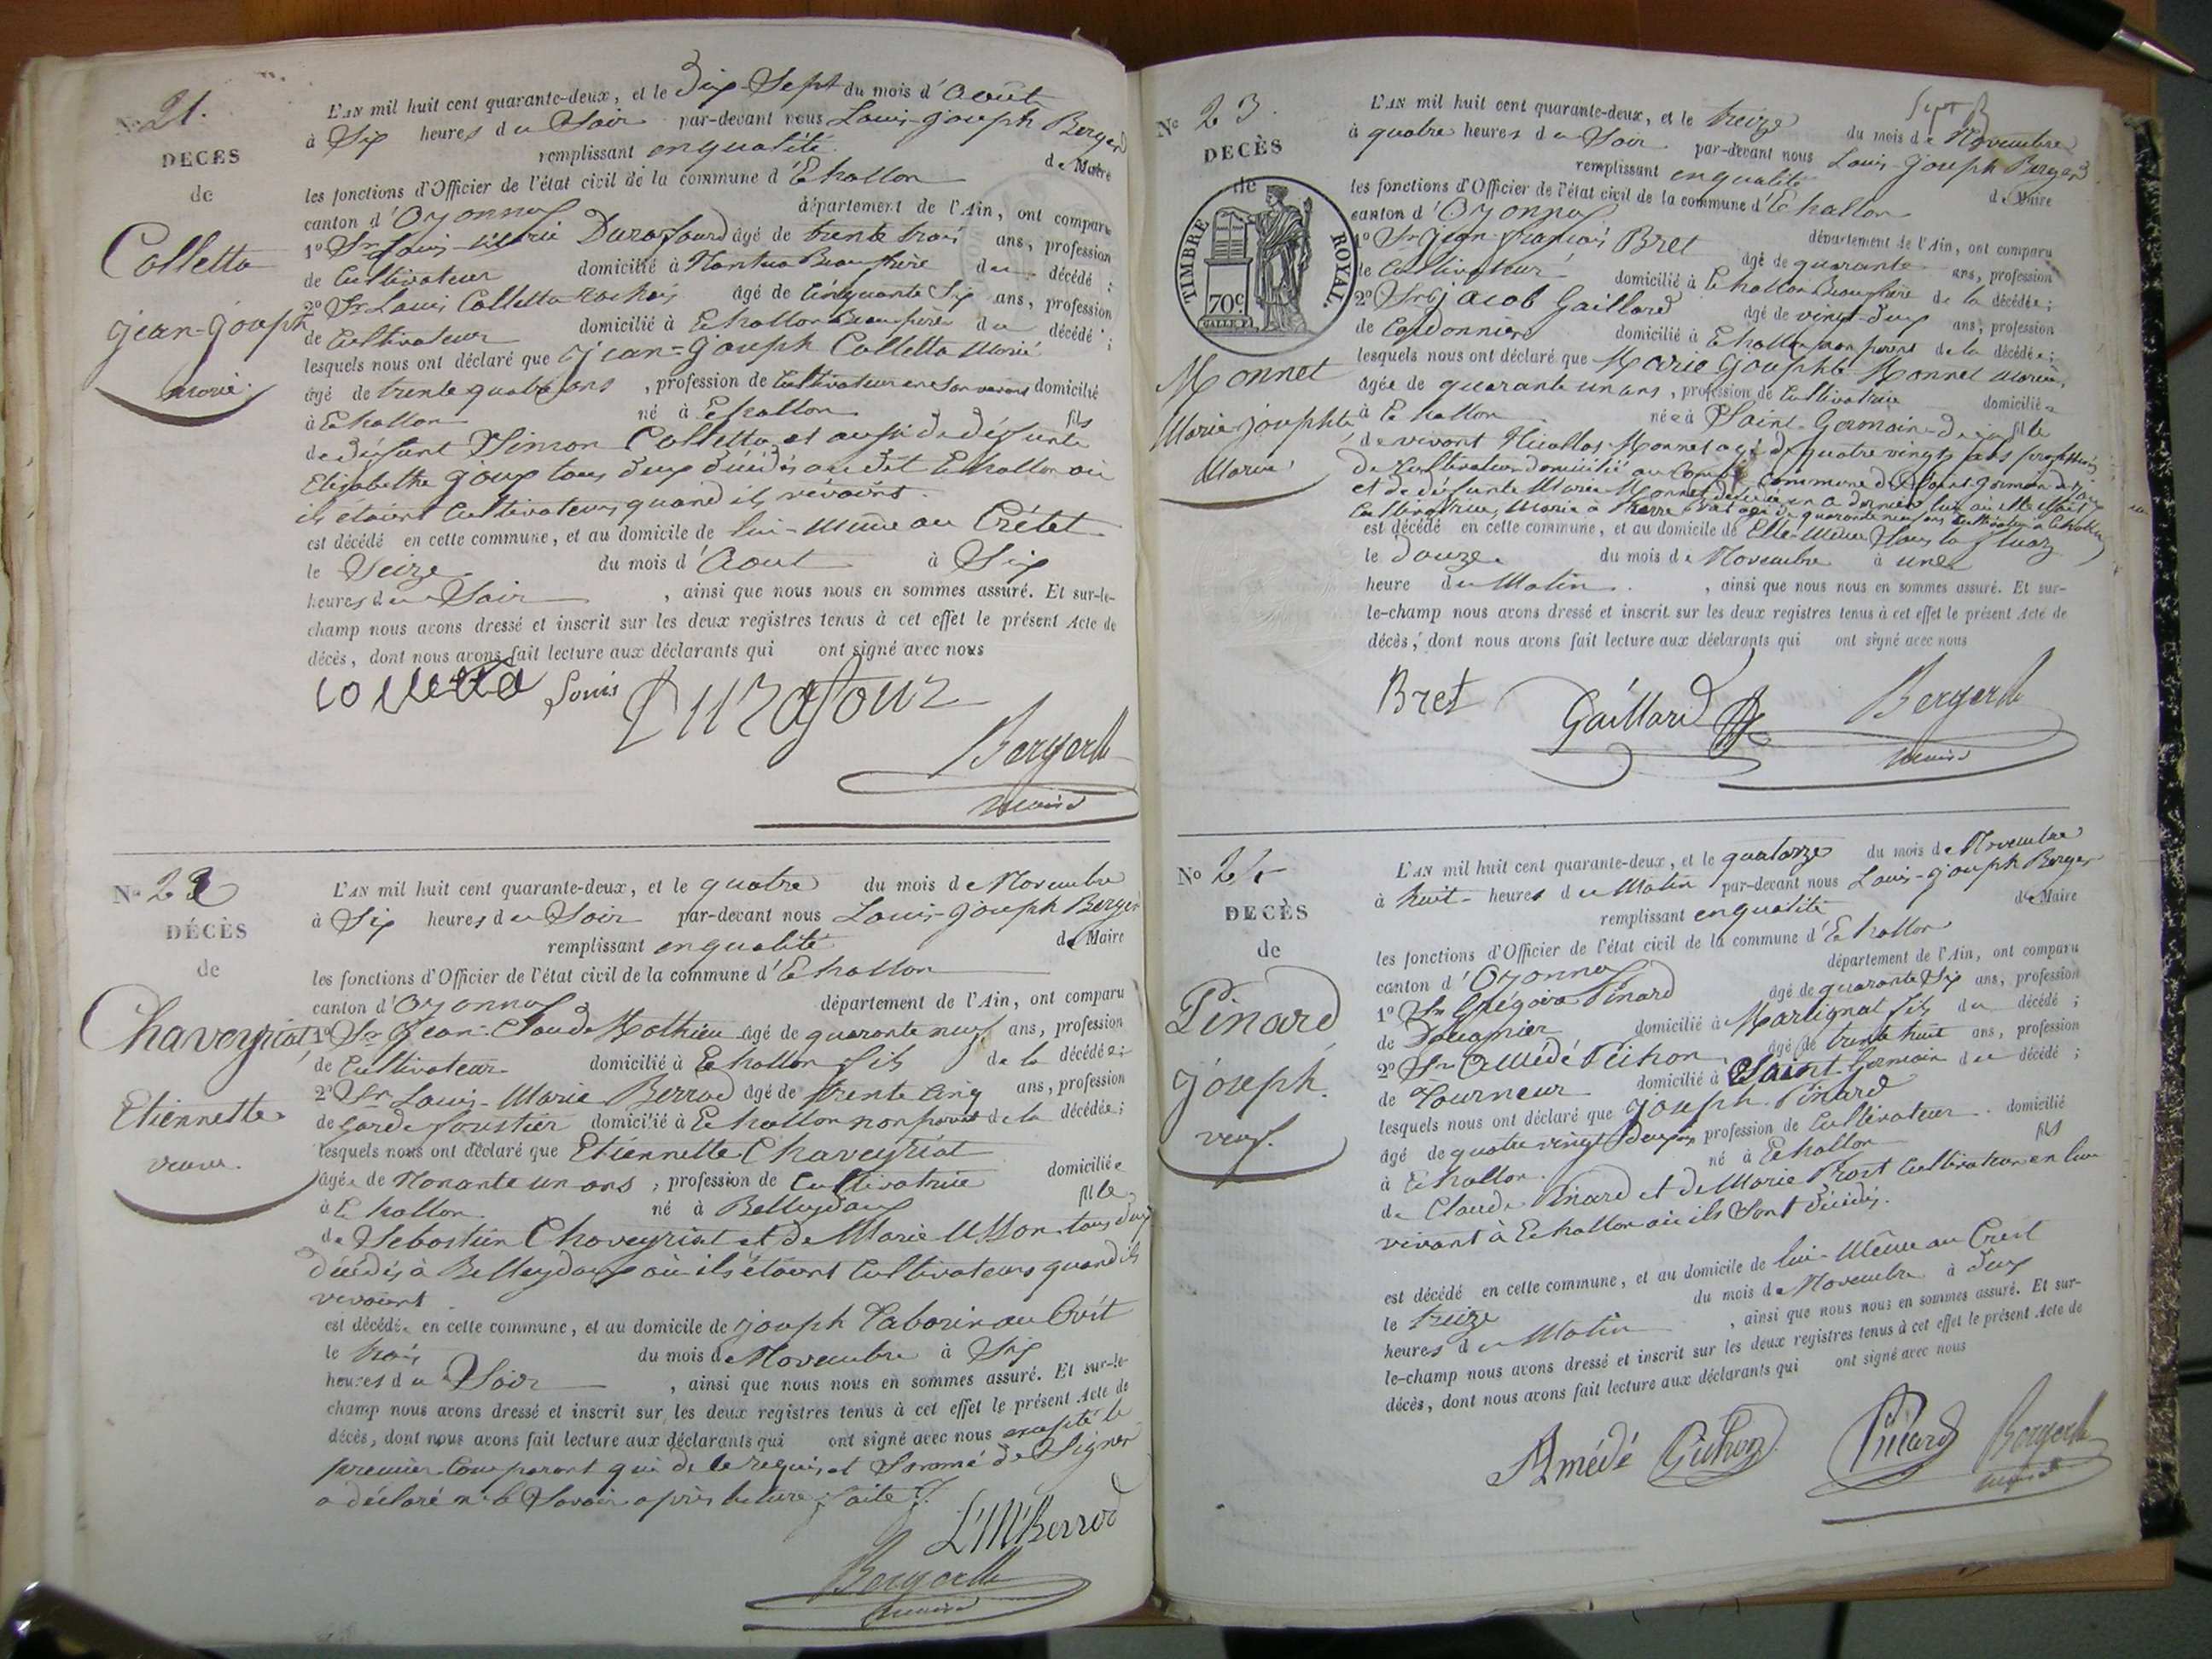 N° 21.
DECES
de
Colletta
jean-joseph
marié.
L'AN mil huit cent quarante-deux, et le Dix-Sept du mois d'Août
à Six heures du Soir par-devant nous Louis-joseph Berger
remplissant en qualité de Maire
les fonctions d'Officier de l'état civil de la commune d'Echallon
canton d'Oyonnax département de l'Ain, ont comparu
1° Sr Louis-Marie Durafourd âgé de trente trois ans, profession
de Cultivateur domicilié à Nantua Beaufrère du décédé ;
2° Sr Louis Colletta âgé de Cinquante Six ans, profession
de Cultivateur domicilié à Echallon Beaupère du décédé ;
lesquels nous ont déclaré que jean-joseph Colletta Marié
âgé de trente quatre ans , profession de Cultivateur en son vivant domicilié
à Echallon né à Echallon fils
de défunt Simon Colletta et aussi de défunte
Elisabethe joux tous deux décédés au dit Echallon où
ils étaient Cultivateurs quand ils vivaient.
est décédé en cette commune, et au domicile de lui-Même au Crétet
le Seize du mois d'Aout à Six
heures du Soir , ainsi que nous nous en sommes assuré. Et sur-le-
champ nous avons dressé et inscrit sur les deux registres tenus à cet effet le présent Acte de
décès, dont nous avons fait lecture aux déclarants qui ont signé avec nous
Colletta Louis Durafour
Berger
maire
N° 22
DÉCÈS
de
Chaveyriat
Etiennette
veuve.
L'AN mil huit cent quarante-deux, et le quatre du mois de Novembre
à Six heures du Soir par-devant nous Louis-joseph Berger
remplissant en qualité de Maire
les fonctions d'Officier de l'état civil de la commune d'Echallon
canton d'Oyonnax département de l'Ain, ont comparu
1° Sr Jean-Claude Mathieu âgé de quarante neuf ans, profession
de Cultivateur domicilié à Echallon fils de la décédée ;
2° Sr Louis-Marie Berrod âgé de trente Cinq ans, profession
de garde forestier domicilié à Echallon non parent de la décédée ;
lesquels nous ont déclaré que Etiennette Chaveyriat
âgée de Nonante un ans , profession de Cultivatrice domiciliée
à Echallon né à Belleydoux fille
de Sébastien Chaveyriat et de Marie Mson tous deux
décédés à Belleydoux où ils étaient Cultivateurs quand ils
vivaient
est décédée en cette commune, et au domicile de joseph Taborin au Crêt
le trois du mois de Novembre à Six
heures du Soir , ainsi que nous nous en sommes assuré. Et sur-le-
champ nous avons dressé et inscrit sur les deux registres tenus à cet effet le présent Acte de
décès, dont nous avons fait lecture aux déclarants qui ont signé avec nous excepté le
premier Comparant qui de ce requis et Sommé de Signer
a déclaré ne le Savoir après lecture faite
L M Berrod
Berger
maire
N° 23.
DECÈS
de
TIMBRE ROYAL.
70c.
Monnet
Marie josephte
Mariée
L'AN mil huit cent quarante-deux, et le treize du mois de Novembre
à quatre heures du Soir par-devant nous Louis-joseph Berger
remplissant en qualité de Maire
les fonctions d'Officier de l'état civil de la commune d'Echallon
canton d'Oyonnax département de l'Ain, ont comparu
1° Sr jean-françois Bret âgé de quarante ans, profession
de Cultivateur domicilié à Echallon Beaufrère de la décédée ;
2° Sr jacob Gaillard âgé de vingt-deux ans, profession
de Cordonnier domicilié à Echallon non parent de la décédée ;
lesquels nous ont déclaré que Marie josephte Monnet Mariée,
âgée de quarante un ans , profession de Cultivatrice domiciliée
à Echallon née à Saint-Germain-de-joux fille
de vivant Nicollas Monnet agé de quatre vingts ans profession
de Cultivateur domicilié au Commune de Saint Germain de joux
et de défunte Marie Monnet décédée en ce dernier lieu où elle était
Cultivatrice, Mariée à Pierre Bret agé de quarante neuf ans Cultivateur à Echallon
est décédé en cette commune, et au domicile de Elle-Même Sous la
le Douze du mois de Novembre à une
heure du Matin , ainsi que nous nous en sommes assuré. Et sur-
le-champ nous avons dressé et inscrit sur les deux registres tenus à cet effet le présent Acte de
décès, dont nous avons fait lecture aux déclarants qui ont signé avec nous
Bret Gaillard Berger
maire
N° 24
DECÈS
de
Pinard
joseph.
veuf.
L'AN mil huit cent quarante-deux, et le quatorze du mois de Novembre
à huit heures du Matin par-devant nous Louis-joseph Berger
remplissant en qualité de Maire
les fonctions d'Officier de l'état civil de la commune d'Echallon
canton d'Oyonnax département de l'Ain, ont comparu
1° Sr Grégoire Pinard âgé de quarante Six ans, profession
de Douanier domicilié à Martignat fils du décédé ;
2° Sr Amédé Pichon âgé de trente huit ans, profession
de Tourneur domicilié à Saint Germain du décédé ;
lesquels nous ont déclaré que joseph Pinard
âgé de quatre vingt deux ans profession de Cultivateur domicilié
à Echallon né à Echallon fils
de Claude Pinard et de Marie Prost Cultivateurs en leur
vivant à Echallon où ils Sont décédés.
est décédé en cette commune, et au domicile de lui-Même au Crest
le treize du mois de Novembre à deux
heures du Matin , ainsi que nous nous en sommes assuré. Et sur-
le-champ nous avons dressé et inscrit sur les deux registres tenus à cet effet le présent Acte de
décès, dont nous avons fait lecture aux déclarants qui ont signé avec nous
Amédé Pichon Pinard Berger
maire